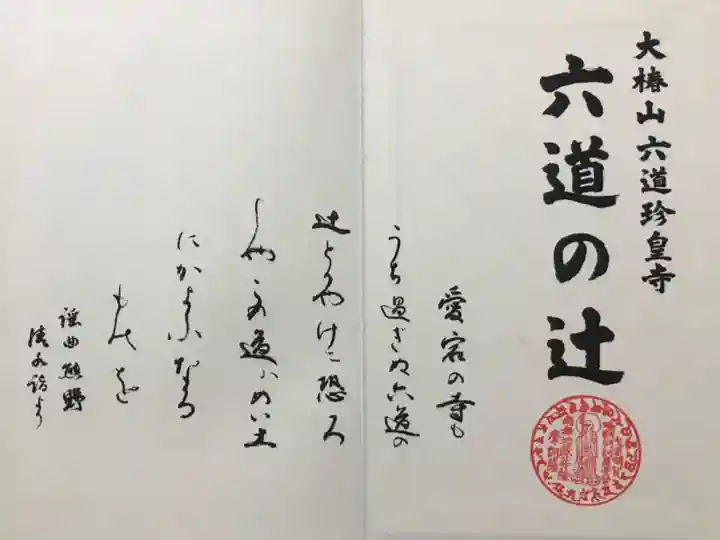 大椿山 六道珍皇寺
六道の辻
愛宕の寺も
うち過ぎぬ六道の
辻とかやげに恐ろ
しやこの道ハめい土
にかよふなる
ものを
謡曲熊野
清水詣より